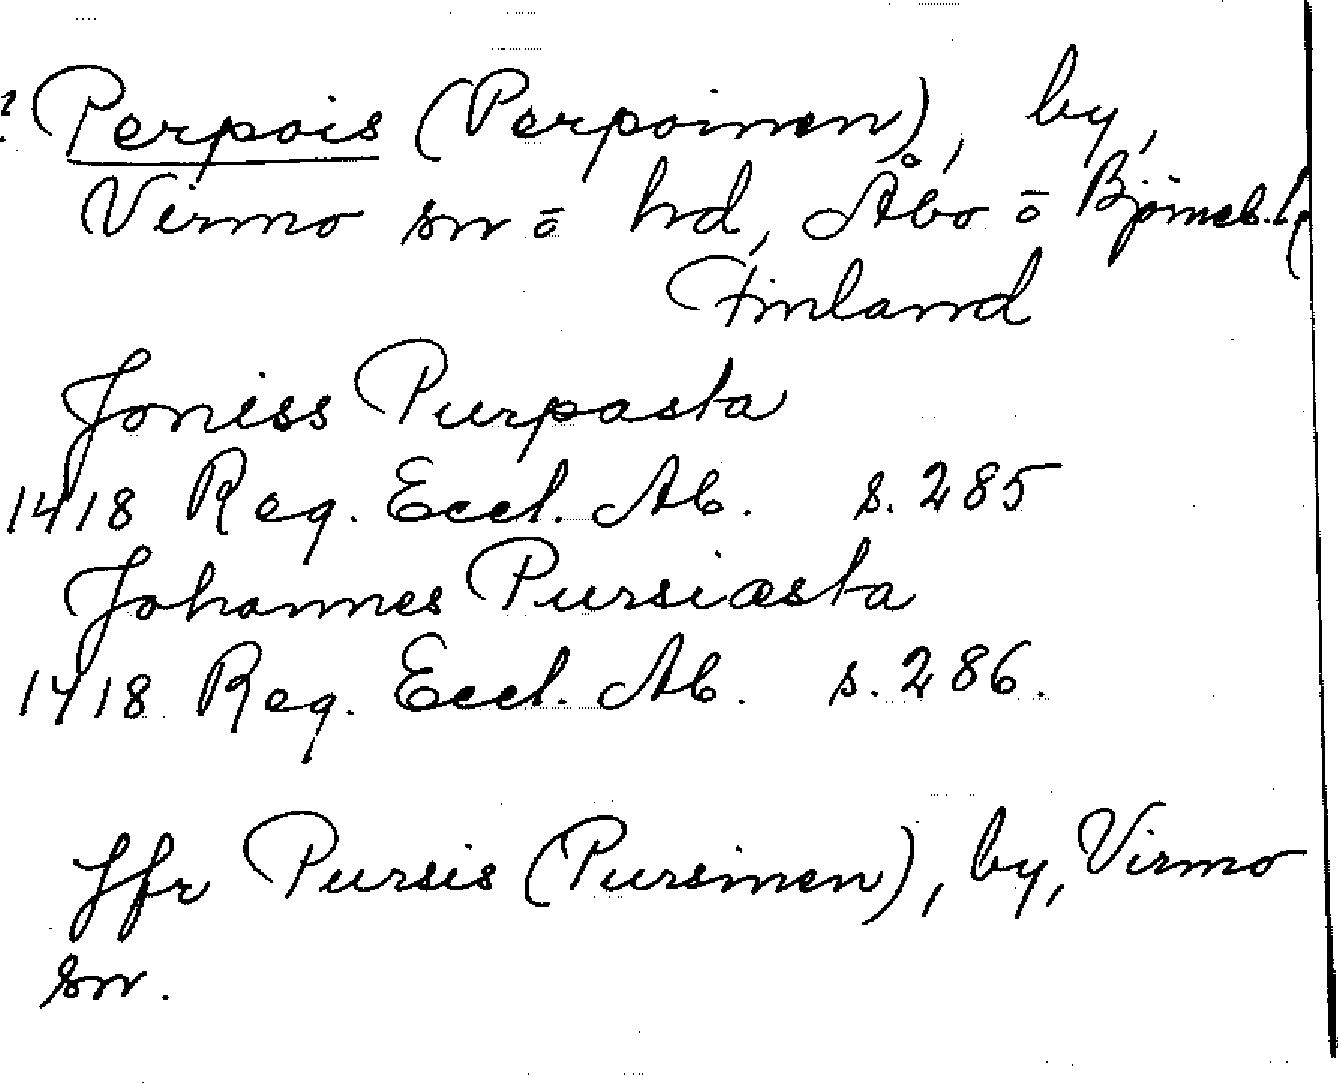 ? Perpois (Perpoinen), by,
Virmo sn ō hd, Åbo ō Björneb. l
Finland
Joniss Purpasta
1418 Reg. Eccl. Ab. s. 285
Johannes Pursiæsta
1418 Reg. Eccl. Ab. s. 286.
Jfr Pursis (Pursinen), by, Virmo
sn.